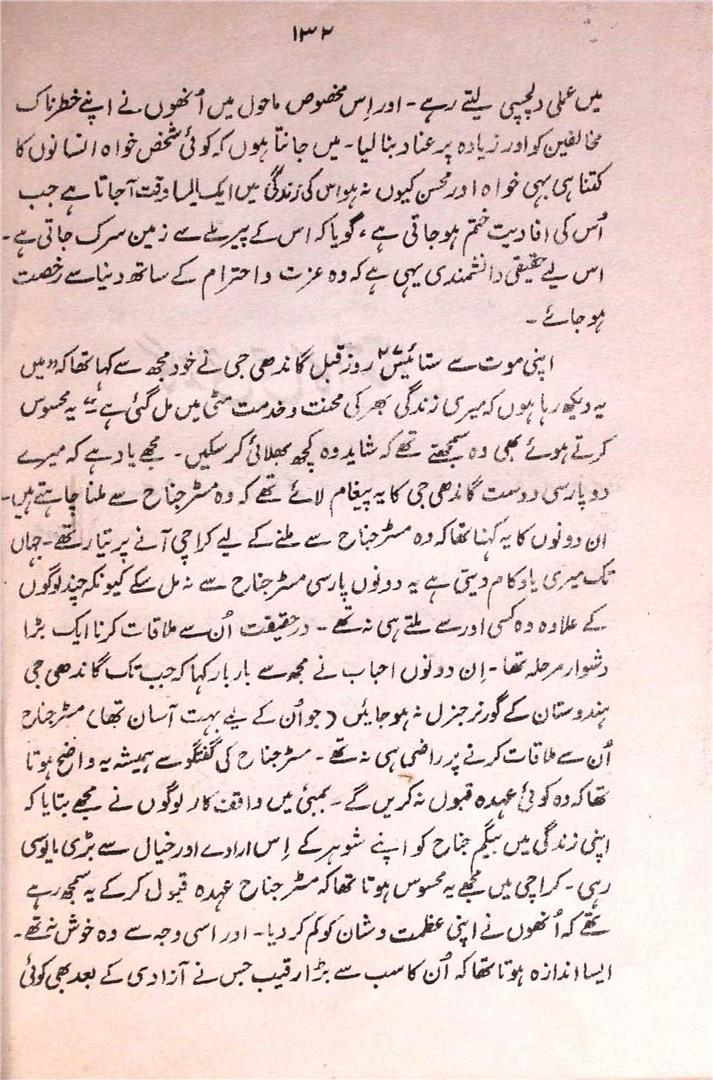 ۱۳۲
میں عملی دلچسپی لیتے رہے - اور اِس مخصوص ماحول میں اُنھوں نے اپنے خطرناک
مخالفین کو اور زیادہ پر عناد بنا لیا - میں جانتا ہوں کہ کوئی شخص خواہ انسانوں کا
کتنا ہی بہی خواہ اور محسن کیوں نہ ہو اس کی زندگی میں ایک ایسا وقت آجاتا ہے جب
اُس کی افادیت ختم ہو جاتی ہے ، گویا کہ اس کے پیر تلے سے زمین سرک جاتی ہے -
اس لیے حقیقی دانشمندی یہی ہے کہ وہ عزت و احترام کے ساتھ دنیا سے رخصت
ہو جائے -
اپنی موت سے ستائیس ۲۷ روز قبل گاندھی جی نے خود مجھ سے کہا تھا کہ "میں
یہ دیکھ رہا ہوں کہ میری زندگی بھر کی محنت و خدمت مٹی میں مل گئی ہے" یہ محسوس
کرتے ہوئے بھی وہ سمجھتے تھے کہ شاید وہ کچھ بھلائی کر سکیں - مجھے یاد ہے کہ میرے
دو پارسی دوست گاندھی جی کا یہ پیغام لائے تھے کہ وہ مسٹر جناح سے ملنا چاہتے ہیں -
ان دونوں کا یہ کہنا تھا کہ وہ مسٹر جناح سے ملنے کے لیے کراچی آنے پر تیار تھے - جہاں
تک میری یاد کام دیتی ہے یہ دونوں پارسی مسٹر جناح سے نہ مل سکے کیونکہ چند لوگوں
کے علاوہ وہ کسی اور سے ملتے ہی نہ تھے - درحقیقت اُن سے ملاقات کرنا ایک بڑا
دشوار مرحلہ تھا - اِن دونوں احباب نے مجھ سے بار بار کہا کہ جب تک گاندھی جی
ہندوستان کے گورنر جنرل نہ ہو جائیں (جو اُن کے لیے بہت آسان تھا) مسٹر جناح
اُن سے ملاقات کرنے پر راضی ہی نہ تھے - مسٹر جناح کی گفتگو سے ہمیشہ یہ واضح ہوتا
تھا کہ وہ کوئی عہدہ قبول نہ کریں گے - بمبئی میں واقف کار لوگوں نے مجھے بتایا کہ
اپنی زندگی میں بیگم جناح کو اپنے شوہر کے اِس ارادے اور خیال سے بڑی مایوسی
رہی - کراچی میں مجھے یہ محسوس ہوتا تھا کہ مسٹر جناح عہدہ قبول کرکے یہ سمجھ رہے
تھے کہ اُنھوں نے اپنی عظمت و شان کو کم کر دیا - اور اسی وجہ سے وہ خوش نہ تھے -
ایسا اندازہ ہوتا تھا کہ اُن کا سب سے بڑا رقیب جس نے آزادی کے بعد بھی کوئی